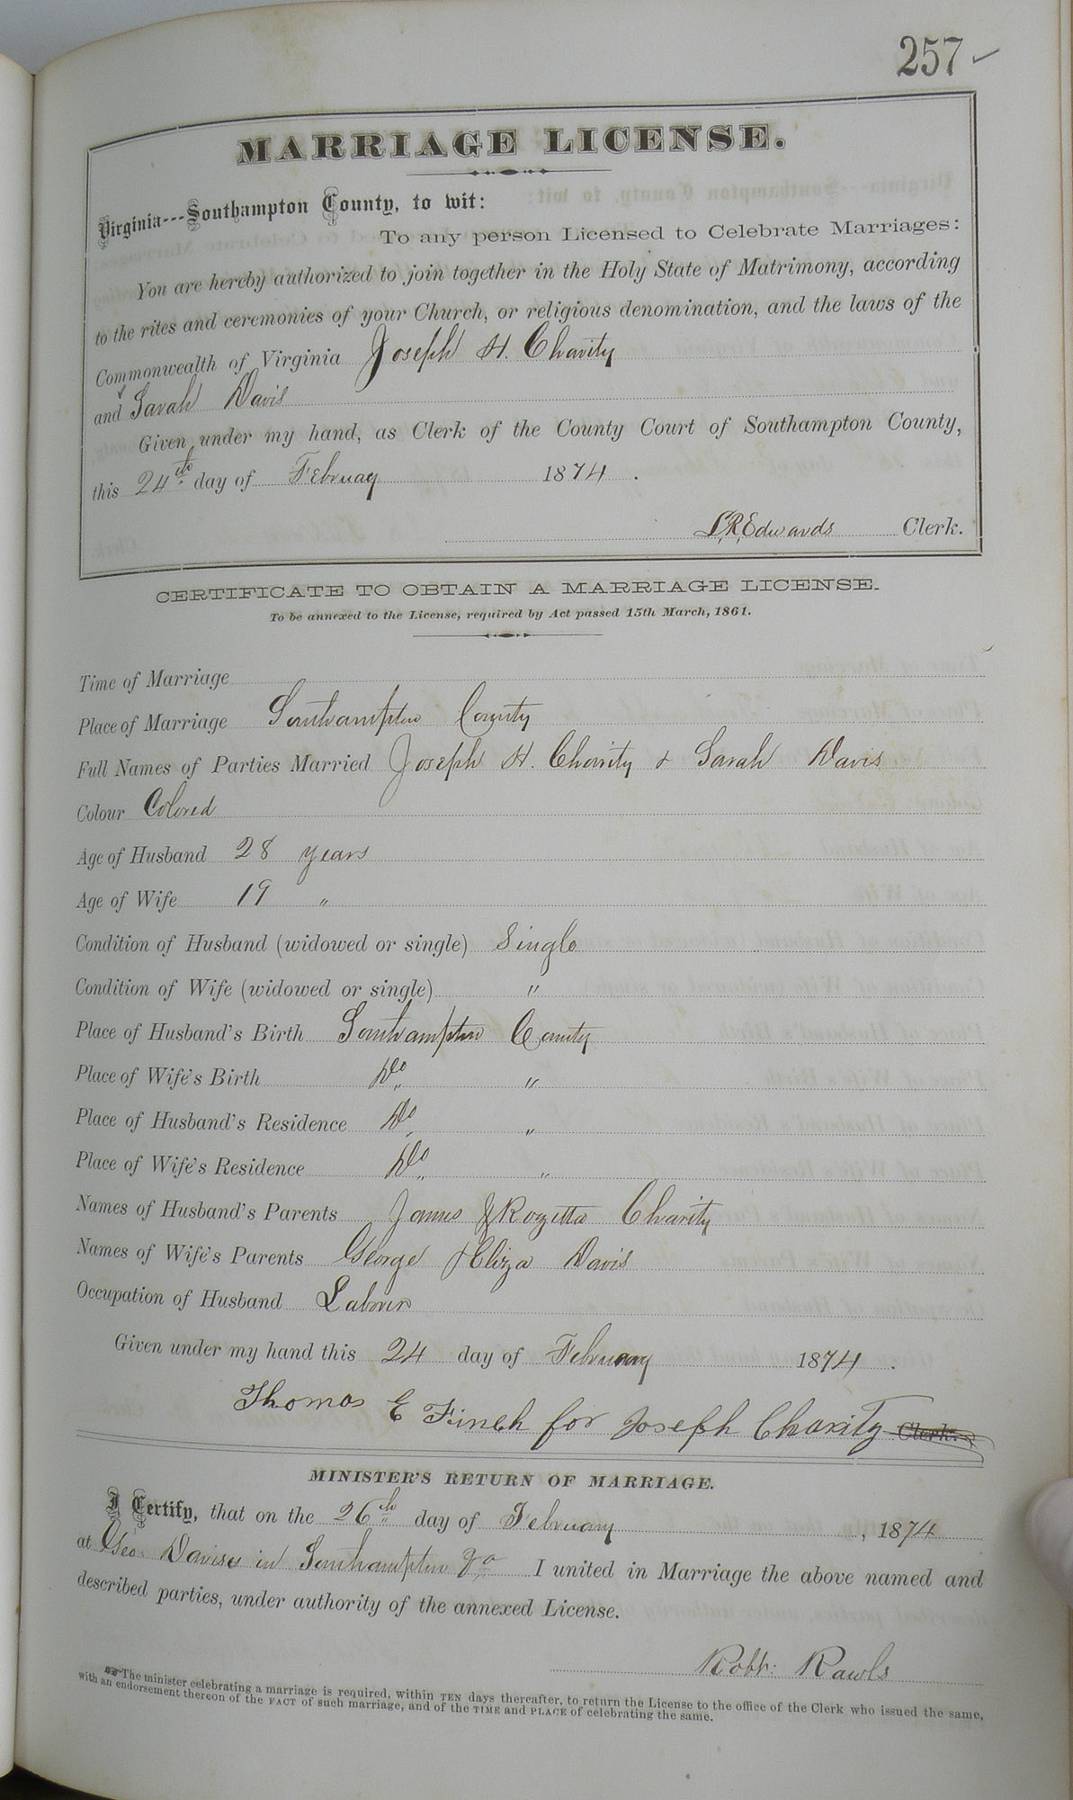 257
MARRIAGE LICENSE.
Virginia---Southampton County, to wit:
To any person Licensed to Celebrate Marriages:
You are hereby authorized to join together in the Holy State of Matrimony, according
to the rites and ceremonies of your Church, or religious denomination, and the laws of the
Commonwealth of Virginia Joseph H. Charity
and Sarah Davis
Given under my hand, as Clerk of the County Court of Southampton County,
this 24th day of Februay 1874.
L.R. Edwards Clerk.
CERTIFICATE TO OBTAIN A MARRIAGE LICENSE.
To be annexed to the License, required by Act passed 15th March, 1861.
Time of Marriage
Place of Marriage Southampton County
Full Names of Parties Married Joseph H. Charity & Sarah Davis
Colour Colored
Age of Husband 28 years
Age of Wife 19 "
Condition of Husband (widowed or single) Single
Condition of Wife (widowed or single) "
Place of Husband's Birth Southampton County
Place of Wife's Birth Do "
Place of Husband's Residence Do "
Place of Wife's Residence Do "
Names of Husband's Parents James & Rozetta Charity
Names of Wife's Parents George & Eliza Davis
Occupation of Husband Laborer
Given under my hand this 24 day of February 1874.
Thomas E Finch for Joseph Charity Clerk.
MINISTER'S RETURN OF MARRIAGE.
I Certify, that on the 26th day of February, 1874
at Geo. Davises in Southampton Va I united in Marriage the above named and
described parties, under authority of the annexed License.
Robt. Rawls
The minister celebrating a marriage is required, within TEN days thereafter, to return the License to the office of the Clerk who issued the same,
with an endorsement thereon of the FACT of such marriage, and of the TIME and PLACE of celebrating the same.